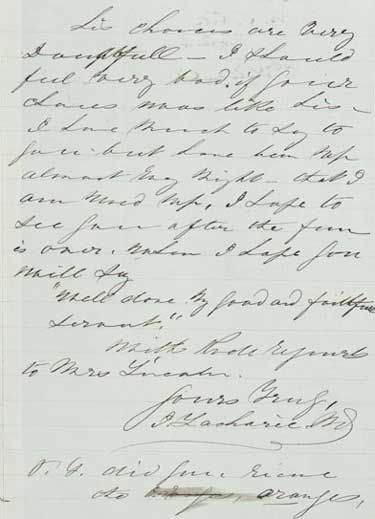 his chances are very
Doubtfull — I should
feel very bad. if your
chances was like his —
I have Much to Say to
you but have been up
almost Evry Night — that I
am Used up, I hope to
see you after the fun
is over. When I hope you
will Say
"Well done My good and faithfull
Servant."
With Kind regards
to Mrs Lincoln.
Yours Truly,
I Zacharie MD
P.S. did you receive
the oranges,